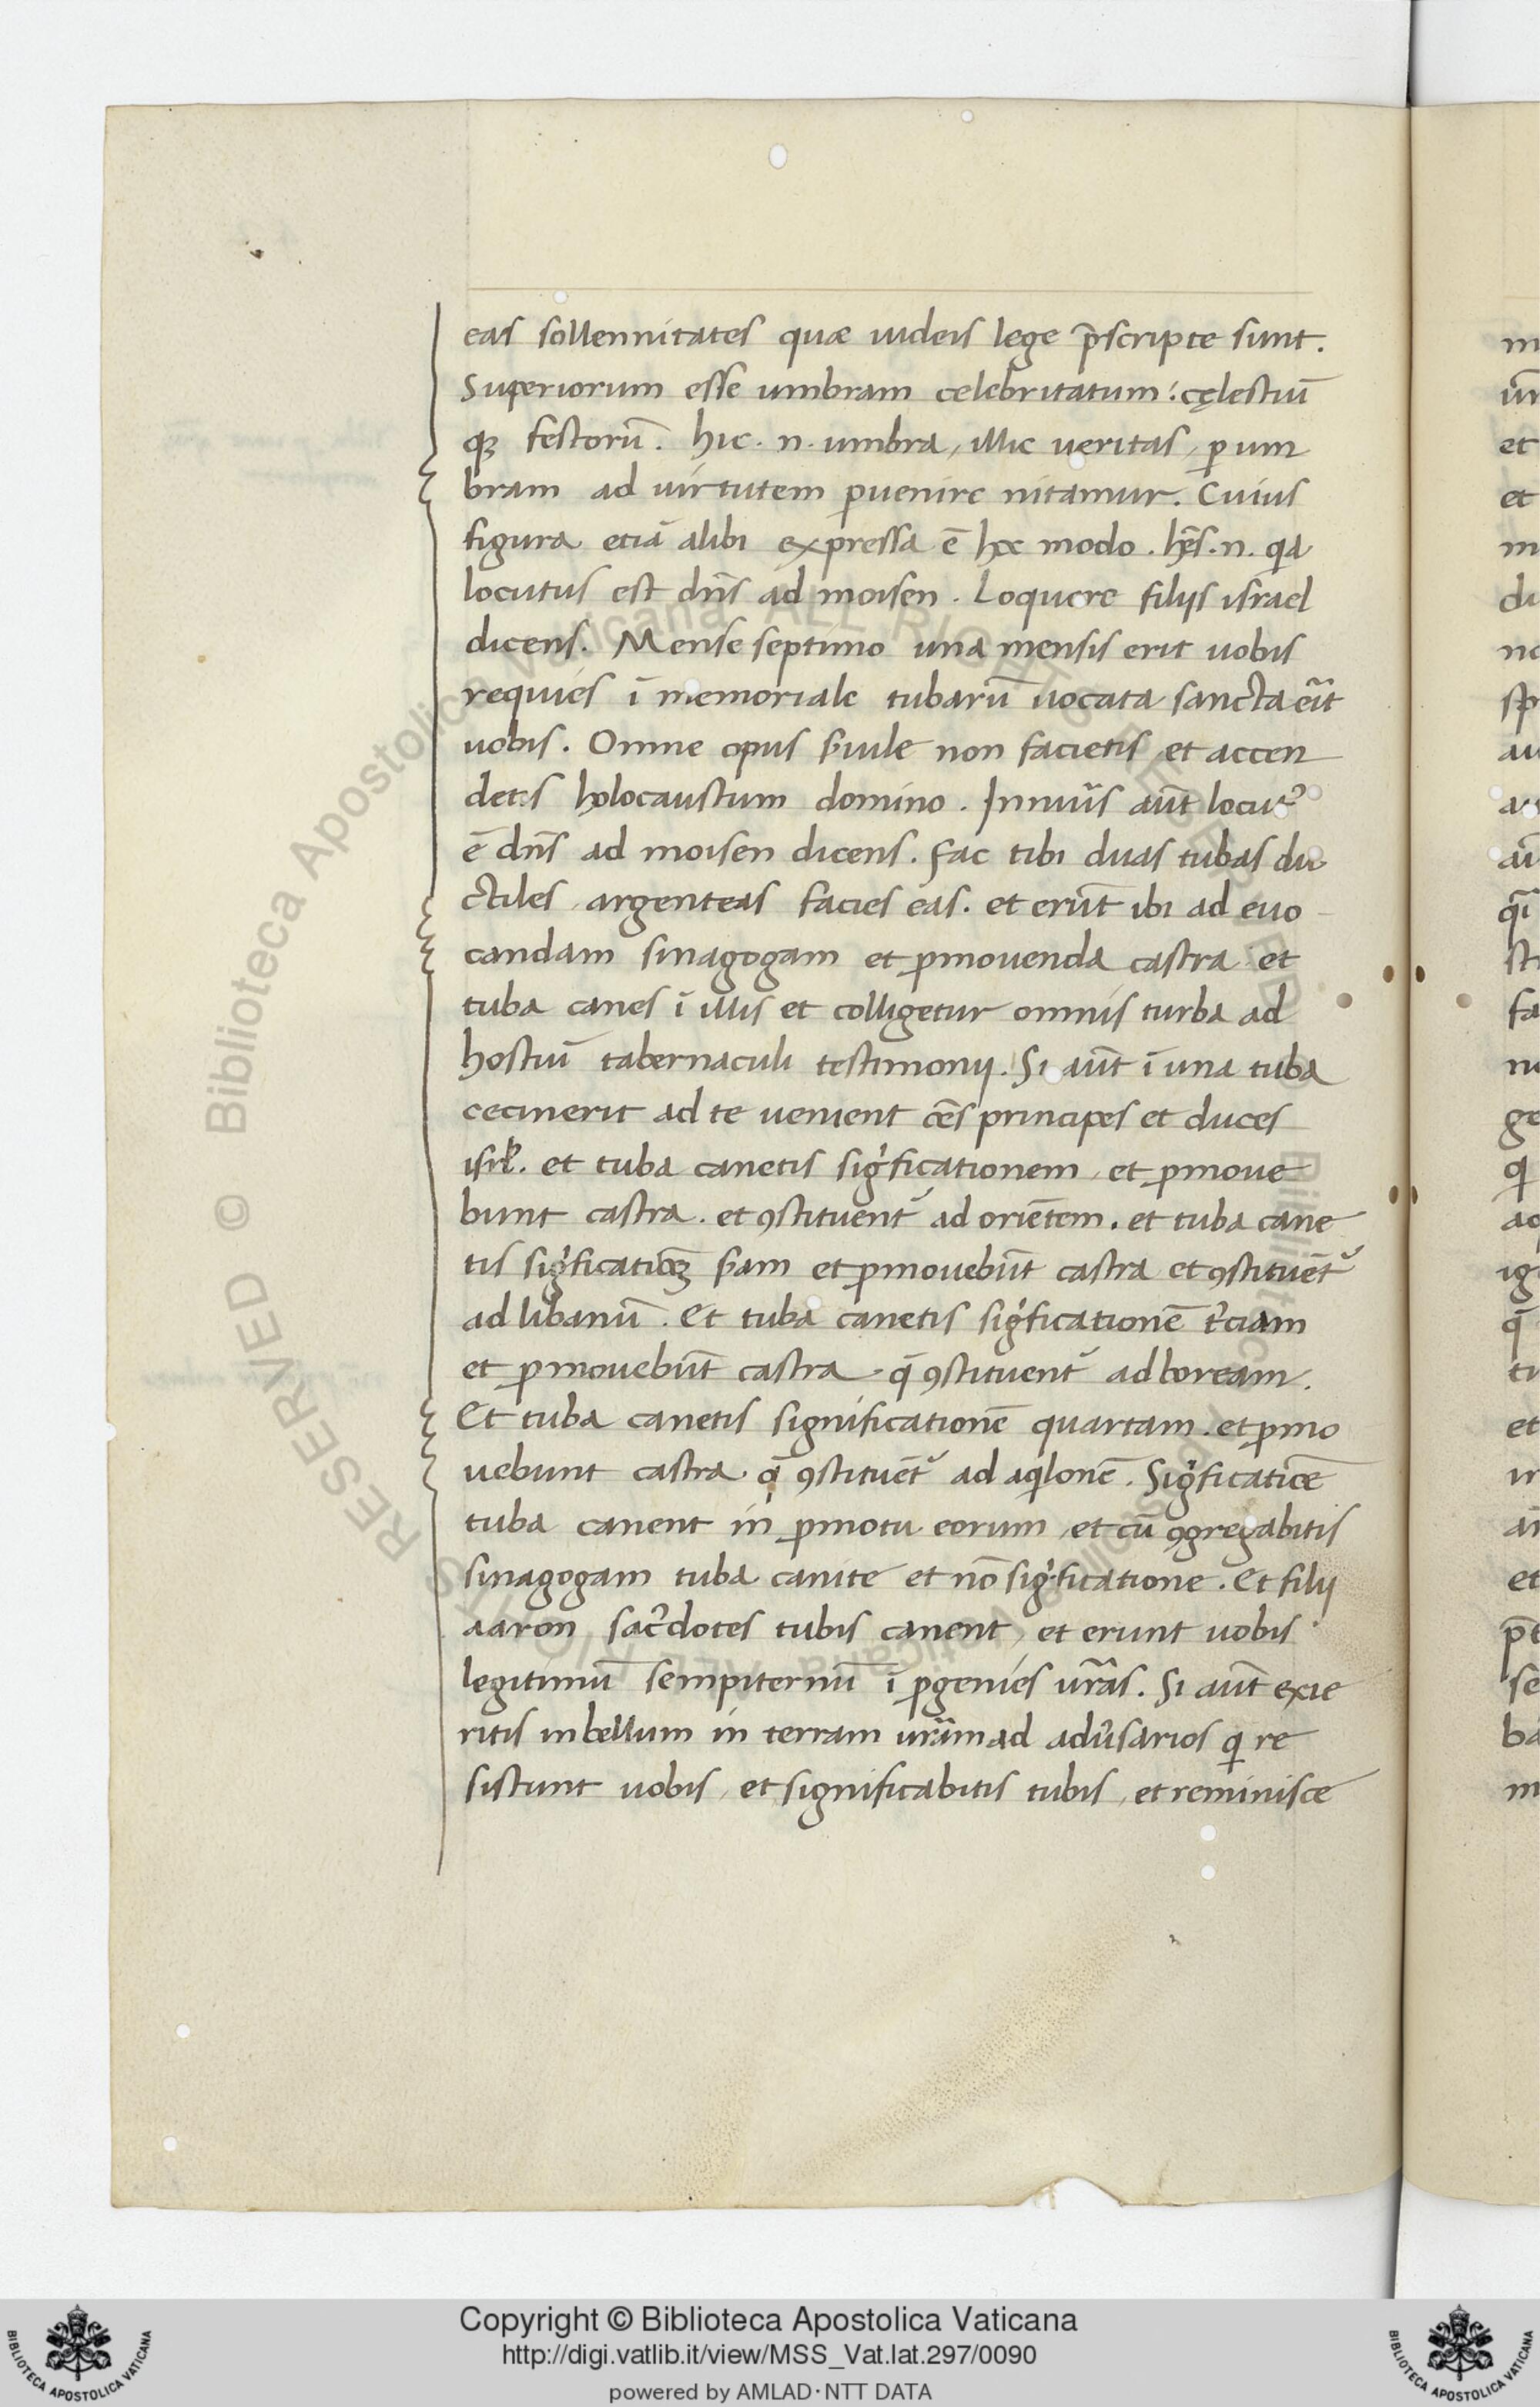 eas sollennitates quæ iudeis lege p̄scripte sunt.
Superiorum esse umbram celebritatum: cęlestiū
qꝫ festorū. hic .n. umbra, illic veritas, ꝑ um
bram ad virtutem ꝑuenire nitamur. Cuius
figura etiā alibi expressa ē hoc modo. hēs .n. qa
locutus est dn̄s ad moisen. Loquere filijs israel
dicens. Mense septimo una mensis erit uobis
requies ī memoriale tubarū uocata sancta erit
uobis. Omne opus s̓uile non facietis et accen
detis holocaustum domino. Innuīs aūt locutꝰ
ē dn̄s ad moisen dicens. Fac tibi duas tubas du
ctiles, argenteas facies eas. et erūt ibi ad euo
candam sinagogam et ꝓmouenda castra et
tuba canes ī illis et colligetur omnis turba ad
hostiū tabernaculi testimonij. Si aūt ī una tuba
cecinerit ad te uenient oēs principes et duces
isrł. et tuba canetis sigͥficationem, et ꝓmoue
bunt castra. et ꝯstituent᷑ ad oriētem. et tuba cane
tis sigͥficatiōꝫ s̓am et ꝓmouebūt castra et ꝯstituēt᷑
ad libanū. Et tuba canetis sigͥficationē t̓ciam
et ꝓmouebūt castra. q̄ ꝯstituent᷑ ad boream.
Et tuba canetis significationē quartam. et ꝓmo
uebunt castra. q̄ ꝯstituēt᷑ ad aqͥlonē. Sigͥficatiōe
tuba canent in ꝓmotu eorum, et cū ꝯgregabitis
sinagogam tuba canite et nō sigͥficatione. Et filij
aaron sac̓dotes tubis canent, et erunt uobis
legitimū sempiternū ī ꝓgenies ur̄as. Si aūt exie
ritis in bellum in terram ur̄am ad adūsarios qͥ re
sistunt uobis, et significabitis tubis, et reminisce
Copyright © Biblioteca Apostolica Vaticana
http://digi.vatlib.it/view/MSS_Vat.lat.297/0090
powered by AMLAD·NTT DATA